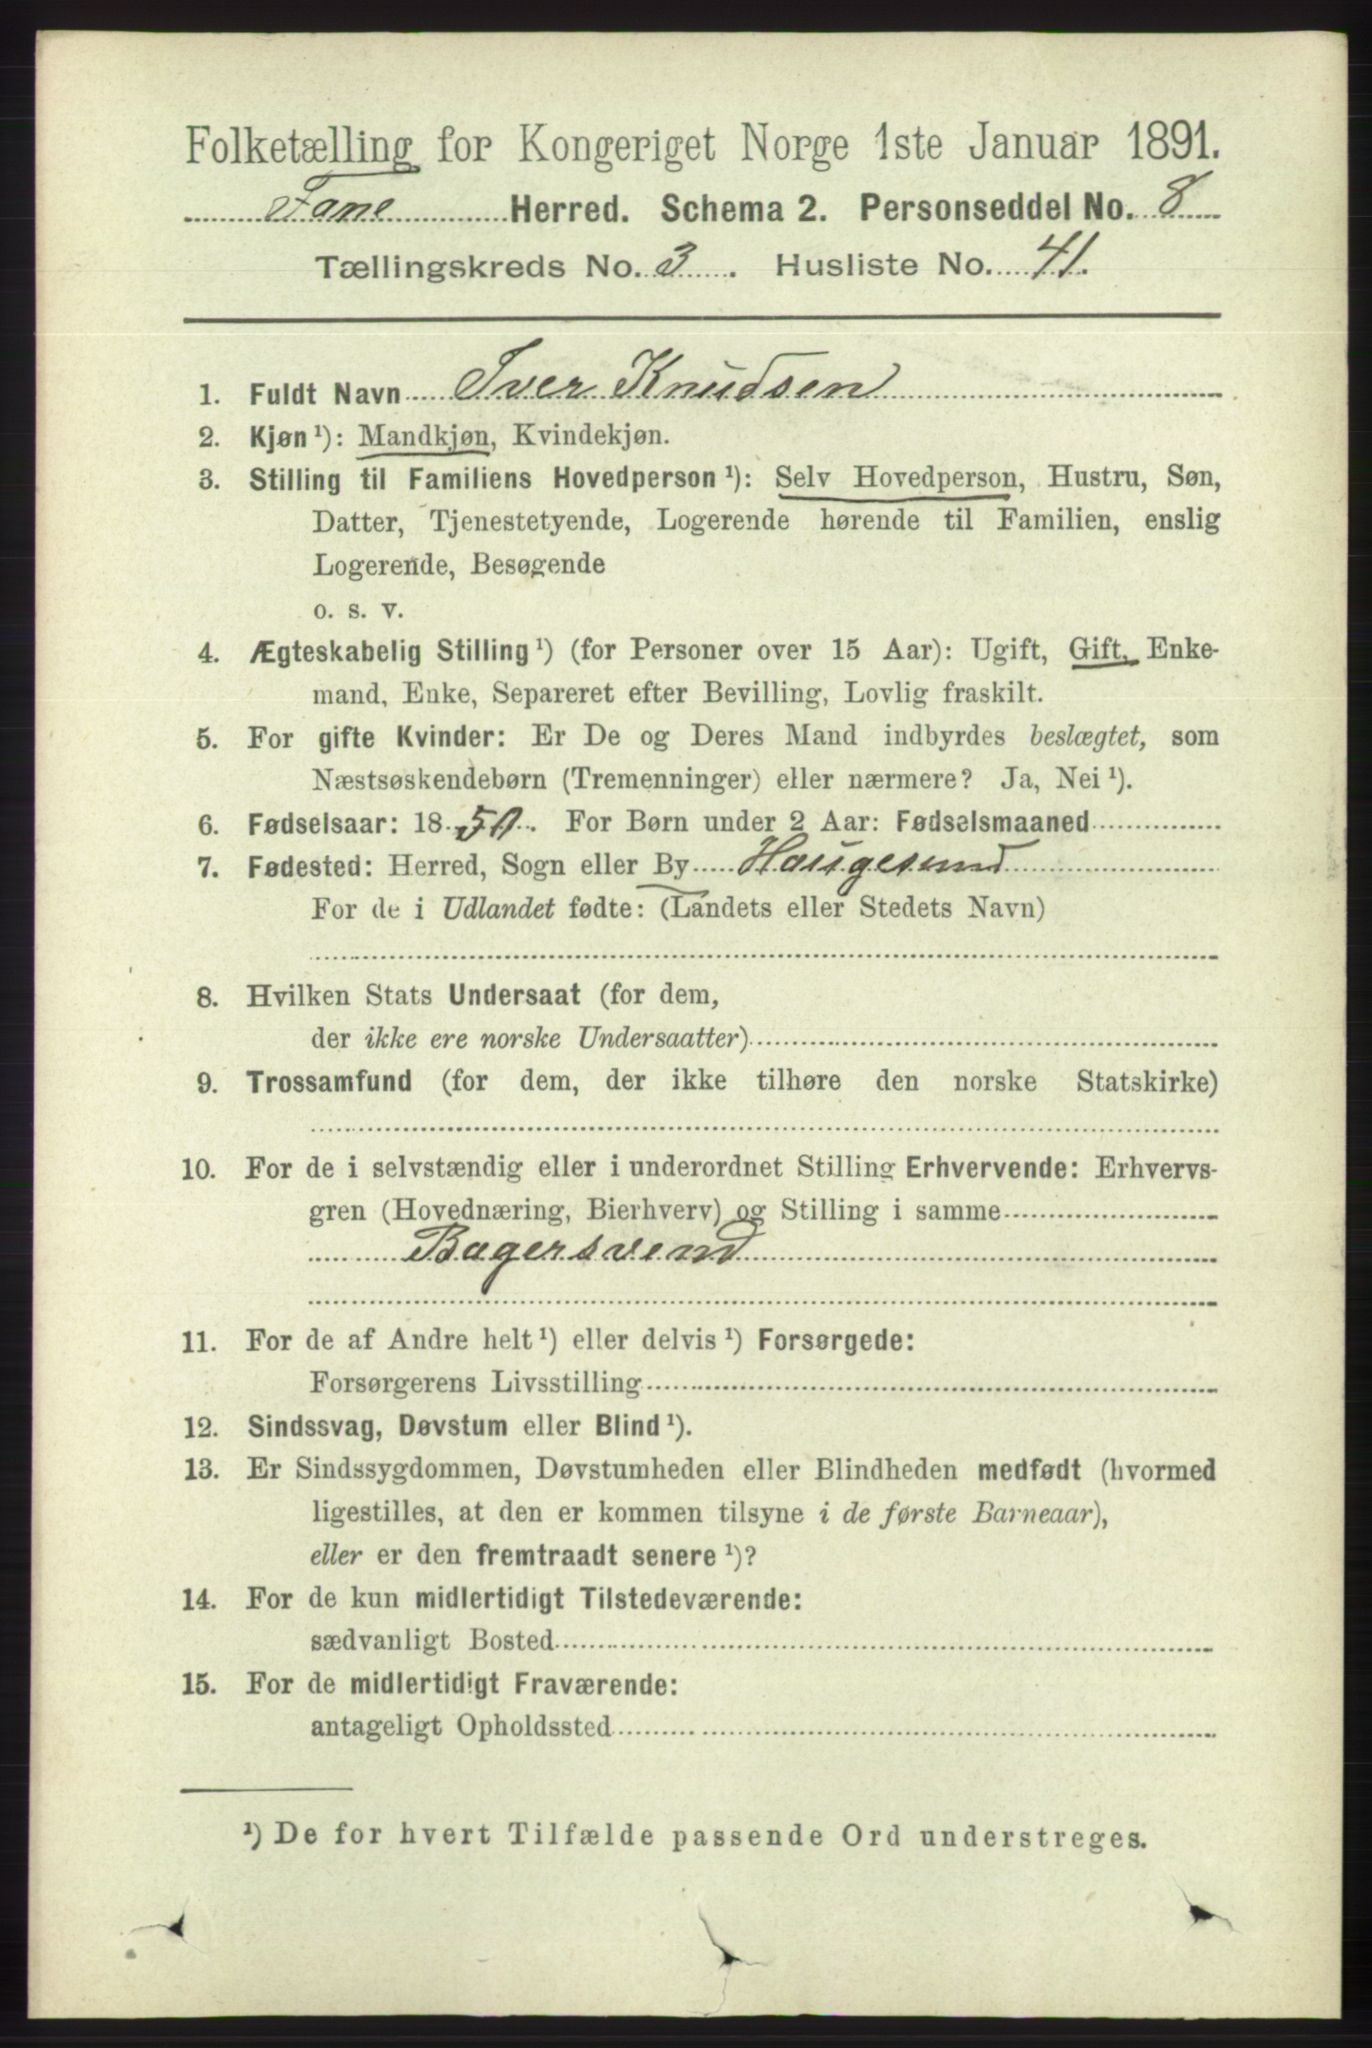 Folketælling for Kongeriget Norge 1ste Januar 1891.
Fane Herred. Schema 2. Personseddel No. 8
Tællingskreds No. 3. Husliste No. 41.
1. Fuldt Navn Iver Knudsen
2. Kjøn¹): Mandkjøn, Kvindekjøn.
3. Stilling til Familiens Hovedperson¹): Selv Hovedperson, Hustru, Søn,
Datter, Tjenestetyende, Logerende hørende til Familien, enslig
Logerende, Besøgende
o. s. v.
4. Ægteskabelig Stilling¹) (for Personer over 15 Aar): Ugift, Gift, Enke-
mand, Enke, Separeret efter Bevilling, Lovlig fraskilt.
5. For gifte Kvinder: Er De og Deres Mand indbyrdes beslægtet, som
Næstsøskendebørn (Tremenninger) eller nærmere? Ja, Nei¹).
6. Fødselsaar: 1850. For Børn under 2 Aar: Fødselsmaaned
7. Fødested: Herred, Sogn eller By Haugesund
For de i Udlandet fødte: (Landets eller Stedets Navn)
8. Hvilken Stats Undersaat (for dem,
der ikke ere norske Undersaatter)
9. Trossamfund (for dem, der ikke tilhøre den norske Statskirke)
10. For de i selvstændig eller i underordnet Stilling Erhvervende: Erhvervs-
gren (Hovednæring, Bierhverv) og Stilling i samme
Bagersvend
11. For de af Andre helt¹) eller delvis¹) Forsørgede:
Forsørgerens Livsstilling
12. Sindssvag, Døvstum eller Blind¹).
13. Er Sindssygdommen, Døvstumheden eller Blindheden medfødt (hvormed
ligestilles, at den er kommen tilsyne i de første Barneaar),
eller er den fremtraadt senere¹)?
14. For de kun midlertidigt Tilstedeværende:
sædvanligt Bosted
15. For de midlertidigt Fraværende:
antageligt Opholdssted
¹) De for hvert Tilfælde passende Ord understreges.